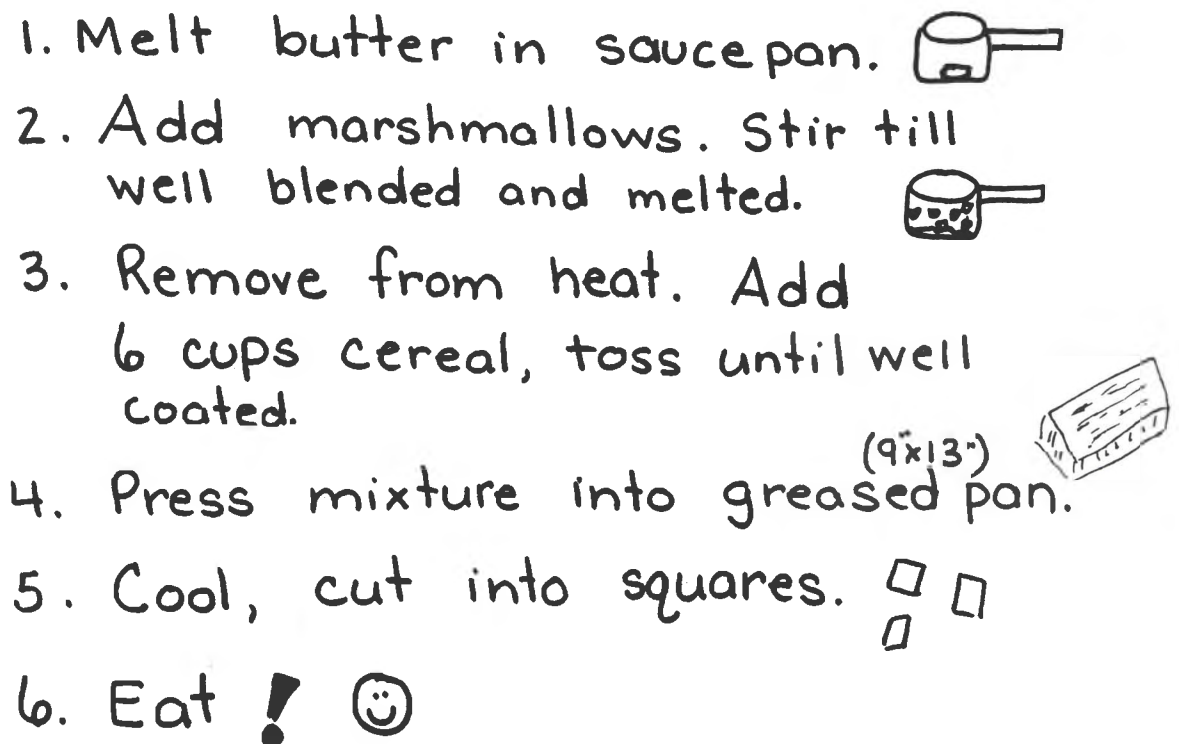 1. Melt butter in saucepan.
2. Add marshmallows. Stir till
well blended and melted.
3. Remove from heat. Add
6 cups cereal, toss until well
coated.
(9"x13")
4. Press mixture into greased pan.
5. Cool, cut into squares.
6. Eat!